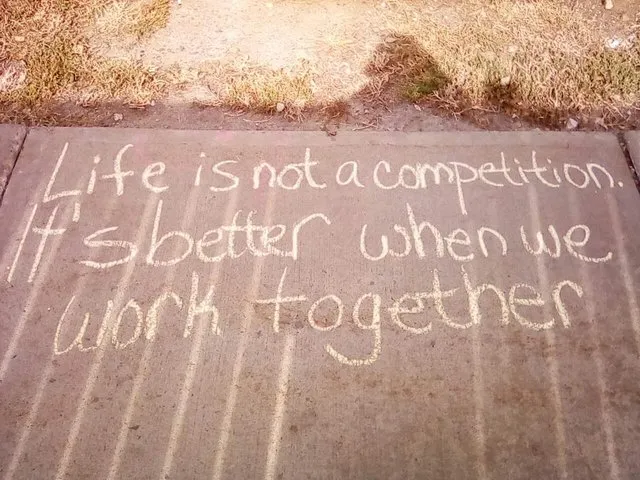 Life is not a competition.
It's better when we
work together